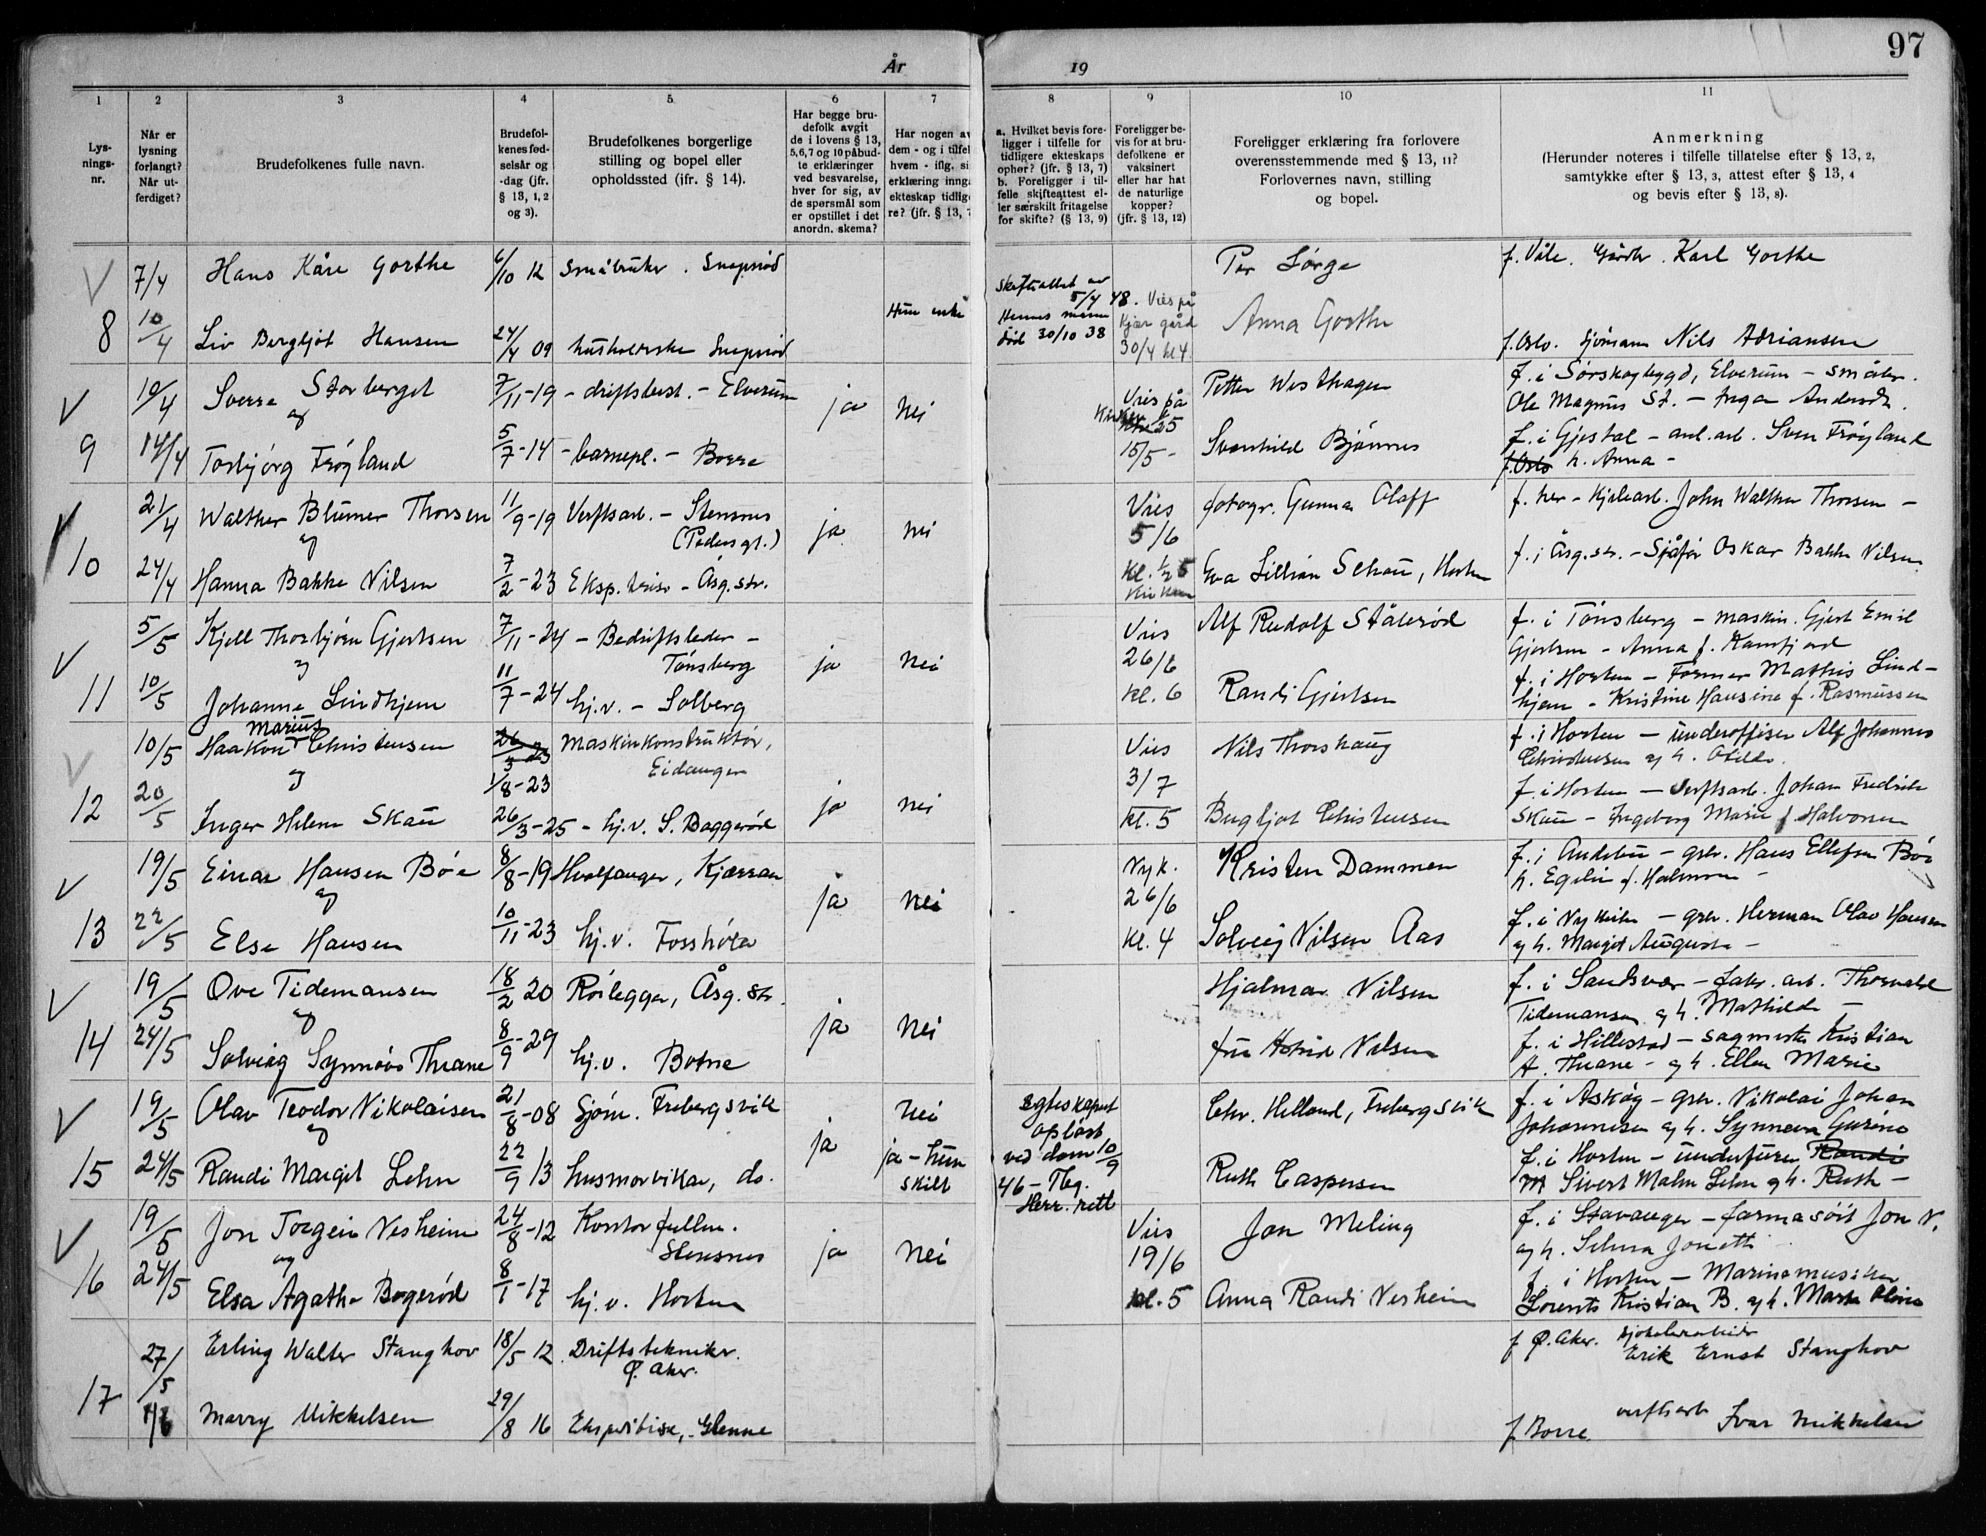 97
År
19
1 2 3 4 5 6 7 8 9 10 11
Lys-
nings-
nr.
Når er
lysning
forlangt?
Når ut-
ferdiget?
Brudefolkenes fulle navn.
Brudefol-
kenes fød-
selsår og
-dag (jfr.
§ 13, 1, 2
og 3).
Brudefolkenes borgerlige
stilling og bopel eller
opholdssted (jfr. § 14).
Har begge bru-
defolk avgit
de i lovens § 13,
5,6,7 og 10 påbud-
te erklæringer
ved besvarelse,
hver for sig, av
de spørsmål som
er opstillet i det
anordn. skema?
Har nogen av
dem - og i tilfel
hvem - iflg. si
erklæring inngå
ekteskap tidlig
re? (jfr. § 13, 7
a. Hvilket bevis fore-
ligger i tilfelle for
tidligere ekteskaps
ophør? (jfr. § 13, 7)
b. Foreligger i til-
felle skifteattest el-
ler særskilt fritagelse
for skifte? (§ 13, 9)
Foreligger be-
vis for at bru-
defolkene er
vaksinert
eller har hat
de naturlige
kopper?
(jfr. § 13, 12)
Foreligger erklæring fra forlovere
overensstemmende med § 13, 11?
Forlovernes navn, stilling
og bopel.
Anmerkning
(Herunder noteres i tilfelle tillatelse efter § 13, 2,
samtykke efter § 13, 3, attest efter § 13, 4
og bevis efter § 13, 8).
7/4 Hans Kåre Gorthe 6/10 12 Småbruker. Snapsrød
Per Sørge
f. Våle. Gårdbr. Karl Gorthe
Skifteattest av
5/4 48.
Hennes mann
død 30/10 38
Vies på
Kjær gård
30/4 kl 4.
Hun enke
8 10/4 Liv Bergljot Hansen 24/4 09 husholderske Snapsrød
Anna Gorthe
f. Oslo. Sjømann Nils Adriansen
10/4 Sverre Storberget 7/11-19 - driftsbest. - Elverum
og
ja nei
Vies på
Kirken
15/5 -
Petter Westhagen
f. i Sørskogbygd, Elverum - småbr.
Ole Magnus St. - Inga Andersdt.
9 14/4 Torbjørg Frøyland 5/7-14 - barnepl. - Borre
Svanhild Bjønnes
f. i Gjestal - anl.arb. Sven Frøyland
f. Oslo h. Anna -
21/4 Walther Blumer Thorsen 11/9-19 Verftsarb. - Stensnes
(Pedersgt.)
og
ja nei
Vies
5/6
kl. 1/2 5
Kirken
fotogr. Gunnar Olaff
f. her - Kjelearb. John Walther Thorsen -
10 24/4 Hanna Bakke Nilsen 7/2-23 Eksp.trise - Åsg.str.
Eva Lillian Schau, Horten
f. i Åsg.str. - Sjåfør Oskar Bakke Nilsen
5/5 Kjell Thorbjørn Gjertsen 7/11-24 - Bedriftsleder -
Tønsberg
og
ja nei
Vies
26/6
kl. 6
Alf Rudolf Stålerød
f. i Tønsberg - maskin. Gjert Emil
Gjertsen - Anna f. Ramfjord
11 10/5 Johanne Lindhjem 11/7-24 hj.v. - Solberg
Randi Gjertsen
f. i Horten - Former Mathis Lind-
hjem - Kristine Hansine f. Rasmussen
10/5 Haakon Marius Christensen 26/3-23 Maskinkonstruktør,
1/8-23 Eidanger
og
ja nei
Vies
3/7
kl. 5
Nils Thorshaug
f. i Horten - underoffiser Alf Johannes
Christensen og h. Otilde.
12 20/5 Inger Helene Skau 26/3-25 - hj.v. S. Baggerød
Bergljot Christensen
f. i Horten - Verftsarb. Johan Fredrik
Skau - Ingeborg Marie f. Halvorsen
19/5 Einar Hansen Bøe 8/8-19 Hvalfanger, Kjærran
og
ja nei
Nyk.
26/6
kl. 4
Kristen Dammen
f. i Andebu - grbr. Hans Ellefsen Bøe
13 22/5 Else Hansen 10/11-23 hj.v. Fosshøla
Solveig Nilsen Aas
f. i Nykirke - grbr. Herman Olav Hansen
og h. Margit Augusta -
19/5 Ove Tidemansen 18/2 20 Rørlegger, Åsg.str.
og
ja nei
Hjalmar Nilsen
f. i Sandsvær - fabr. arb. Thorvald
Tidemansen og h. Mathilde -
14 24/5 Solveig Synnøve Thrane 8/9-29 hj.v. Botne
fru Astrid Nilsen
f. i Hillestad - sagmester Kristian
A. Thrane - og h. Ellen Marie
19/5 Olav Teodor Nikolaisen 21/8-08 Sjøm. Frebergsvik
og
ja nei
Egteskapet
opløst
ved dom 10/9
46 - Tbg.
Herr.rett
Chr. Helland, Frebergsvik
f. i Askøy - grbr. Nikolai Johan
Johannesen og h. Synneva Gurine
15 24/5 Randi Margit Lehn 22/9 13 husmorvikar, do.
ja - hun
skilt
Ruth Caspersen
f. i Horten - underfurer Randi
M Sivert Malm Lehn og h. Ruth -
19/5 Jon Torgein Nesheim 24/8-12 Kontorfullm.
Stensnes
og
ja nei
Vies
19/6
kl. 5
Jon Meling
f. i Stavanger - farmasøit Jon N.
og h. Selma Jonette
16 24/5 Elsa Agathe Bogerød 8/1-17 hj.v. Horten
Anna Randi Nesheim
f. i Horten - Marinemusiker
Lorents Kristian B. og h. Marta Olava
27/5 Erling Walter Stanghov 18/5 12 Driftstekniker.
Ø. Aker.
f Ø. Aker. sjokoladearbeider
Erik Ernst Stanghov
17 1/6 Marry Mikkelsen 29/8 16 Ekspeditrise, - Glenne
f Borre. verftsarb Ivar Mikkelsen